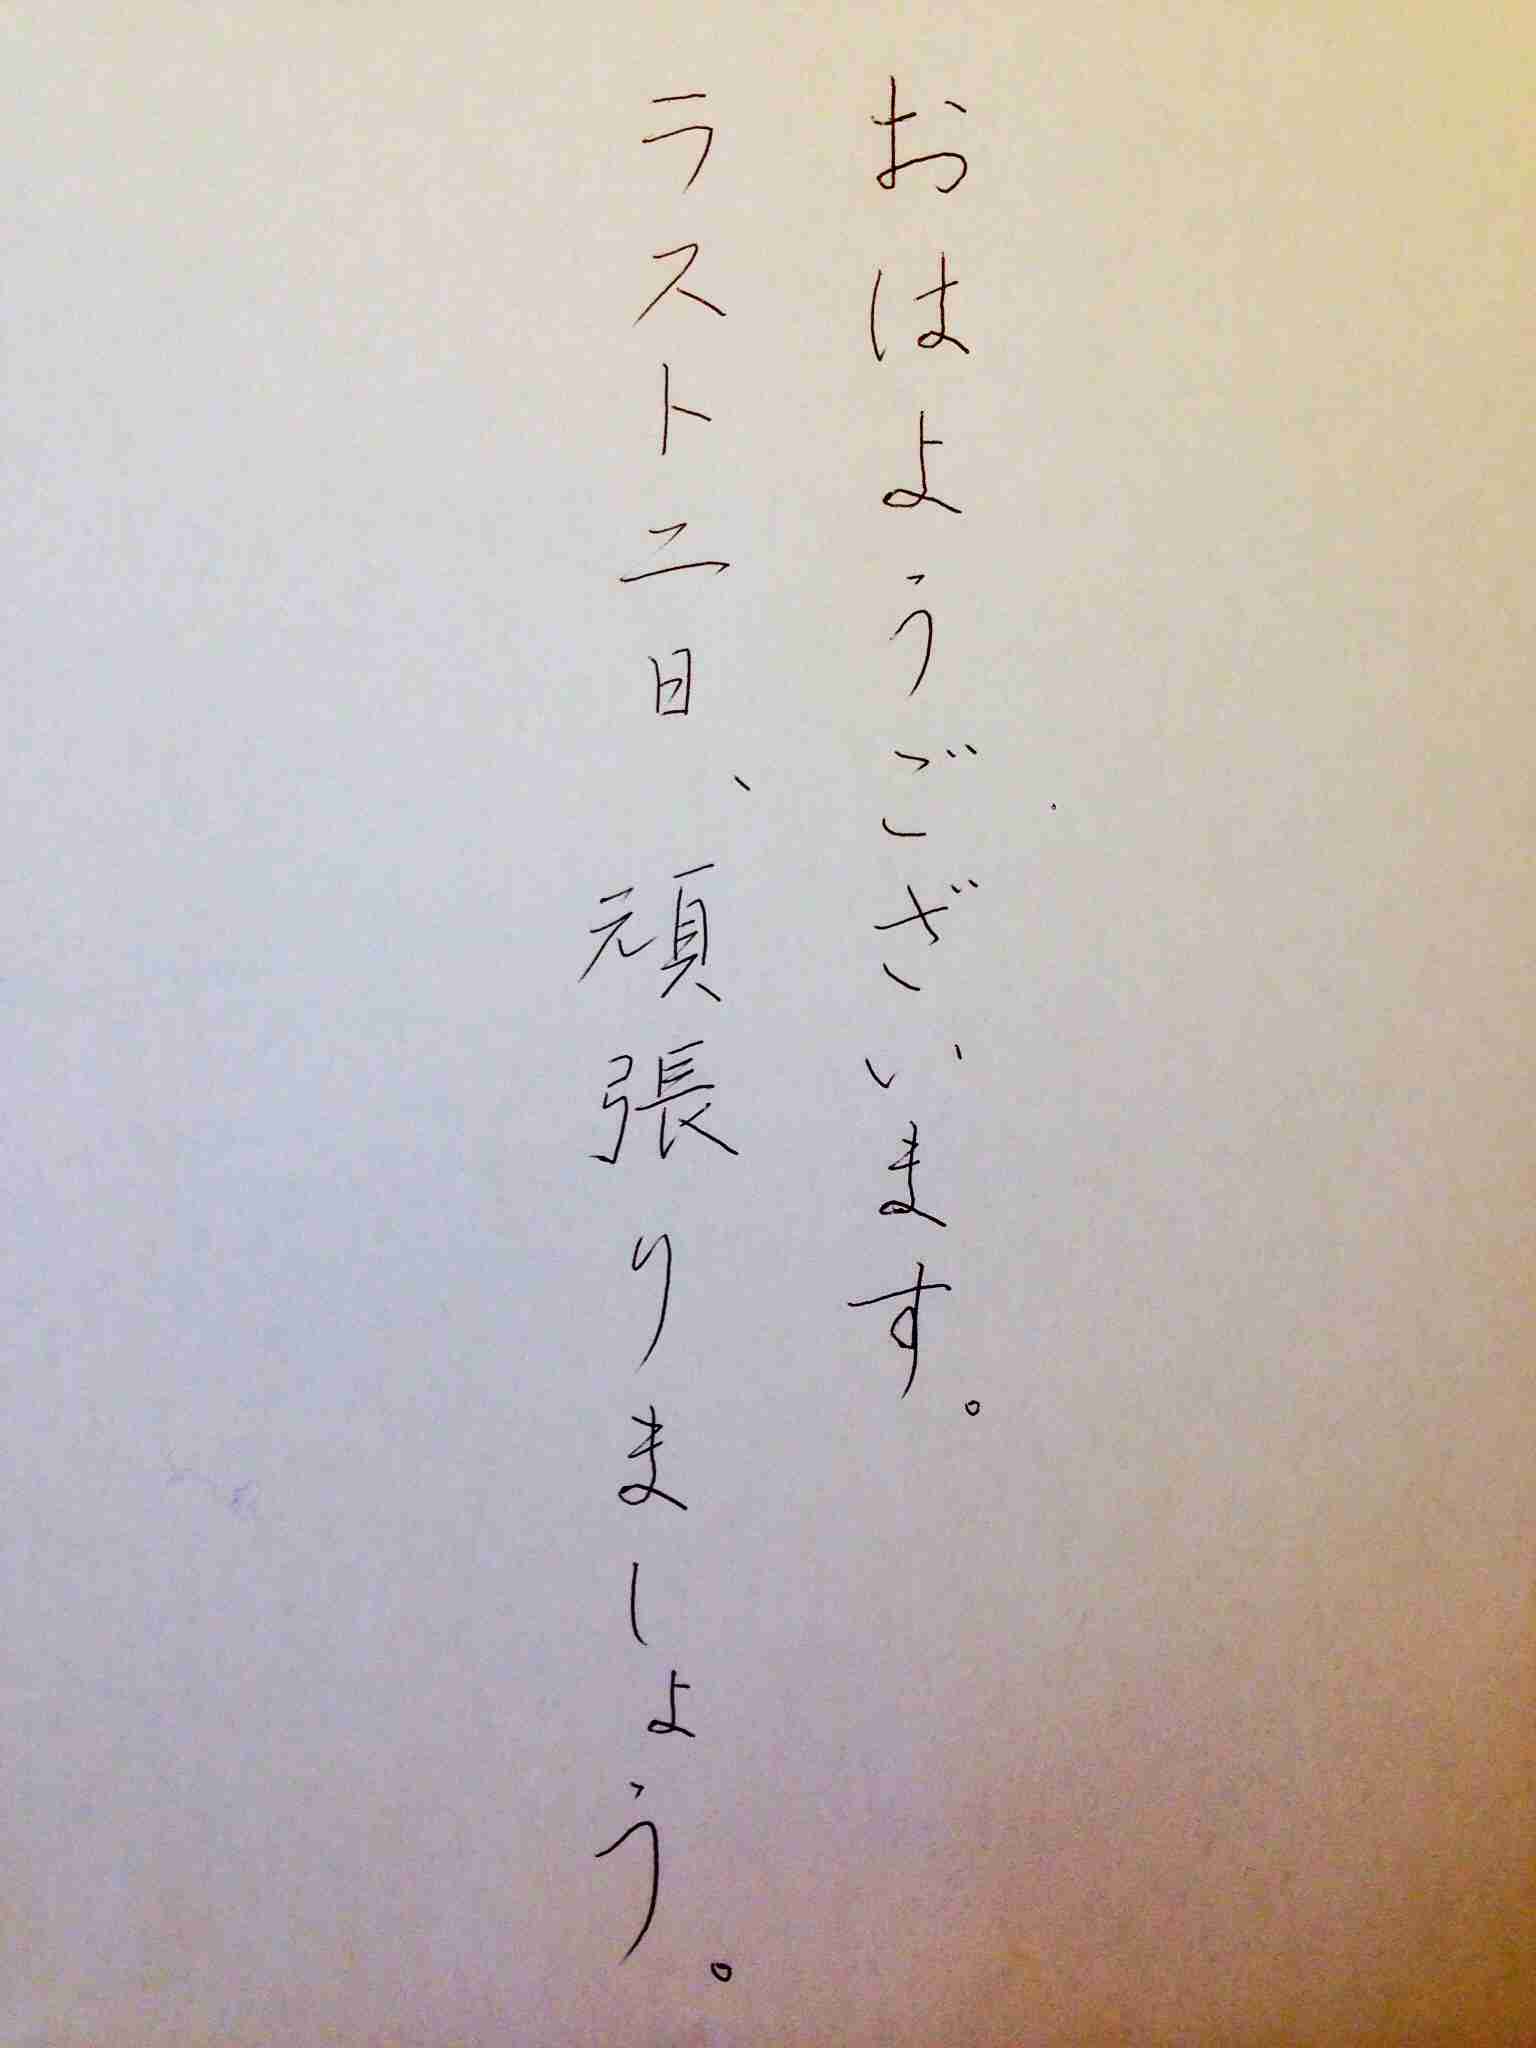 おはようございます。
ラスト二日、頑張りましょう。